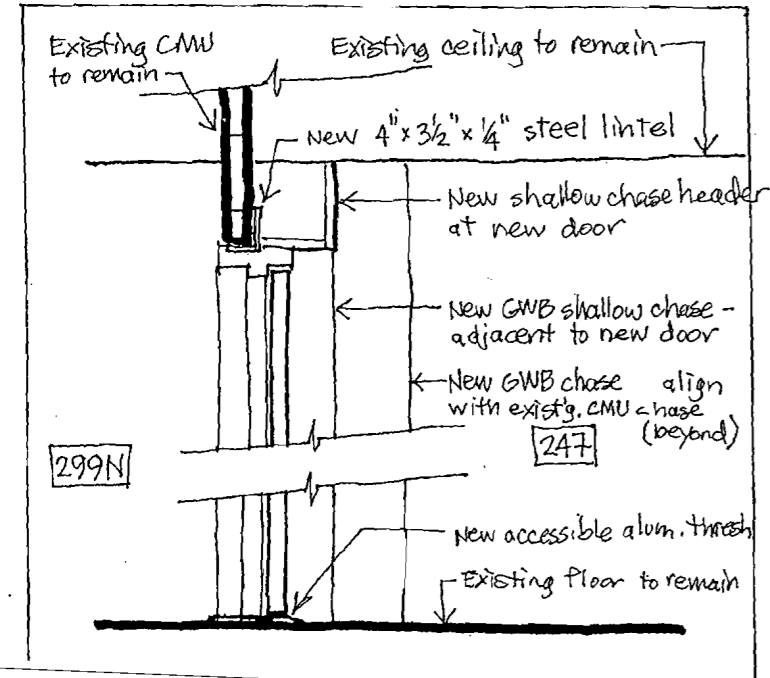 Existing CMU
to remain
Existing ceiling to remain
New 4" x 3½" x ¼" steel lintel
New shallow chase header
at new door
New GWB shallow chase -
adjacent to new door
New GWB chase align
with exist'g. CMU chase
(beyond)
299N
247
New accessible alum. thresh
Existing floor to remain